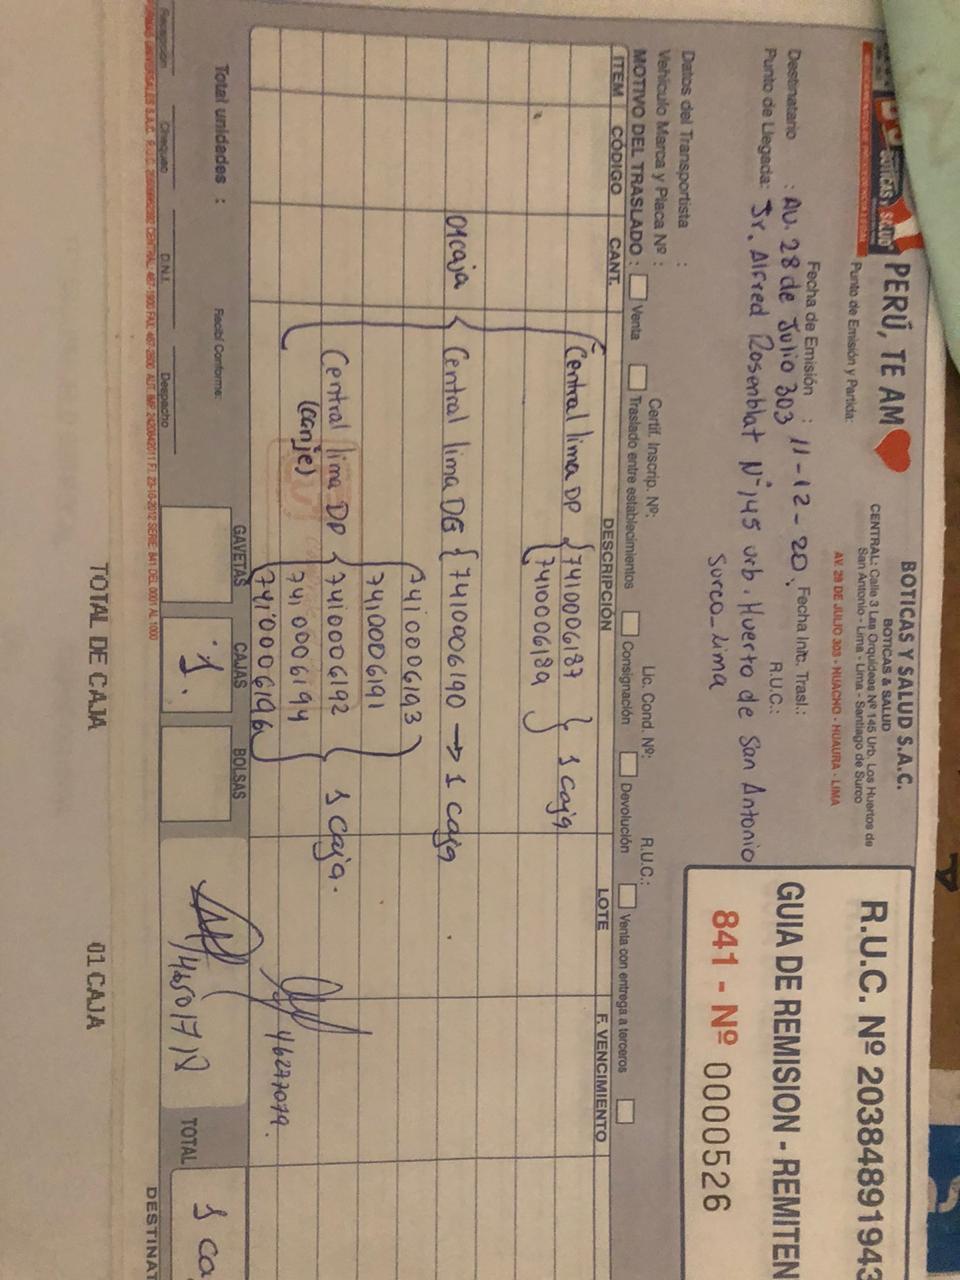 BOTICAS Y SALUD
PERÚ, TE AM
BOTICAS Y SALUD S.A.C.
BOTICAS & SALUD
CENTRAL: Calle 3 Las Orquideas Nº 145 Urb. Los Huertos de
San Antonio - Lima - Lima - Santiago de Surco
AV. 28 DE JULIO 303 - HUACHO - HUAURA - LIMA
R.U.C. Nº 20384891943
GUIA DE REMISION - REMITEN
841 - Nº 0000526
Punto de Emisión y Partida:
Fecha de Emisión : 11-12-20. Fecha Init. Trasl.:
Destinatario : AV. 28 de Julio 303 R.U.C.:
Punto de Llegada: Jr. Alfred Rosenblat Nº 145 urb. Huerto de San Antonio
Surco_Lima
Datos del Transportista :
Vehículo Marca y Placa Nº : Certif. Inscrip. Nº: Lic. Cond. Nº: R.U.C.:
MOTIVO DEL TRASLADO : Venta Traslado entre establecimientos Consignación Devolución Venta con entrega a terceros
ITEM CÓDIGO CANT. DESCRIPCIÓN LOTE F. VENCIMIENTO
Central lima DP { 7410006187 } 1 caja
7410006189
01 caja { Central lima DG { 7410006190 → 1 caja
7410006193
7410006191
Central lima DP { 7410006192 } 1 caja.
(canje) 7410006194
7410006196
46277079.
Total unidades : Recibí Conforme:
GAVETAS CAJAS BOLSAS
1.
TOTAL 1 ca
Recepción Chequeo D.N.I. Despacho
DESTINAT
TOTAL DE CAJA 01 CAJA